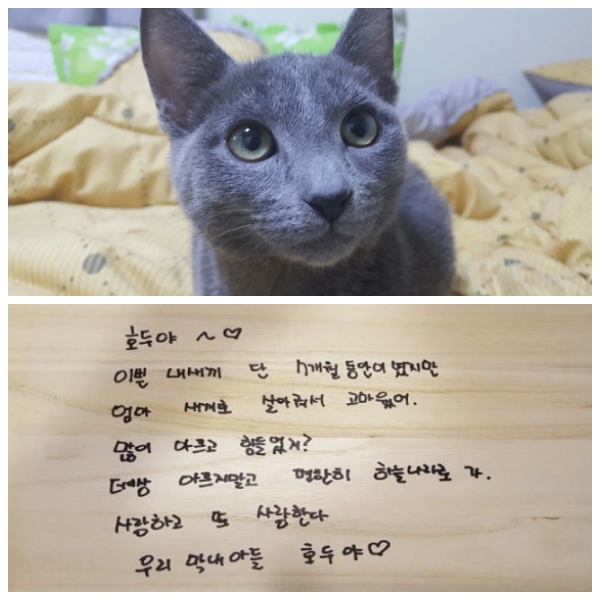 호두야 ~ ♡
이쁜 내새끼 단 7개월 동안이였지만
엄마 새끼로 살아줘서 고마웠어.
많이 아프고 힘들었지?
더이상 아프지말고 편안히 하늘나라로 가.
사랑하고 또 사랑한다
우리 막내아들 호두야♡